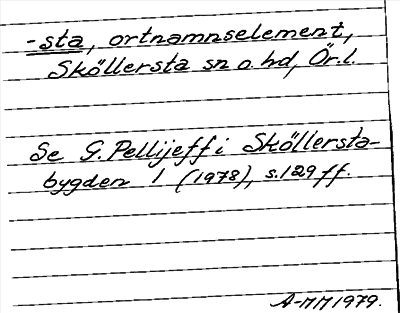 -sta, ortnamnselement,
Sköllersta sn o. hd, Ör.l.
Se G. Pellijeff i Sköllersta-
bygden 1 (1978), s. 129 ff.
A-MM 1979.